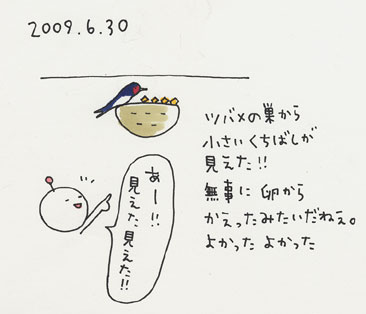 2009.6.30
ツバメの巣から
小さいくちばしが
見えた!!
無事に卵から
かえったみたいだねぇ。
よかった よかった
あー!!
見えた見えた!!